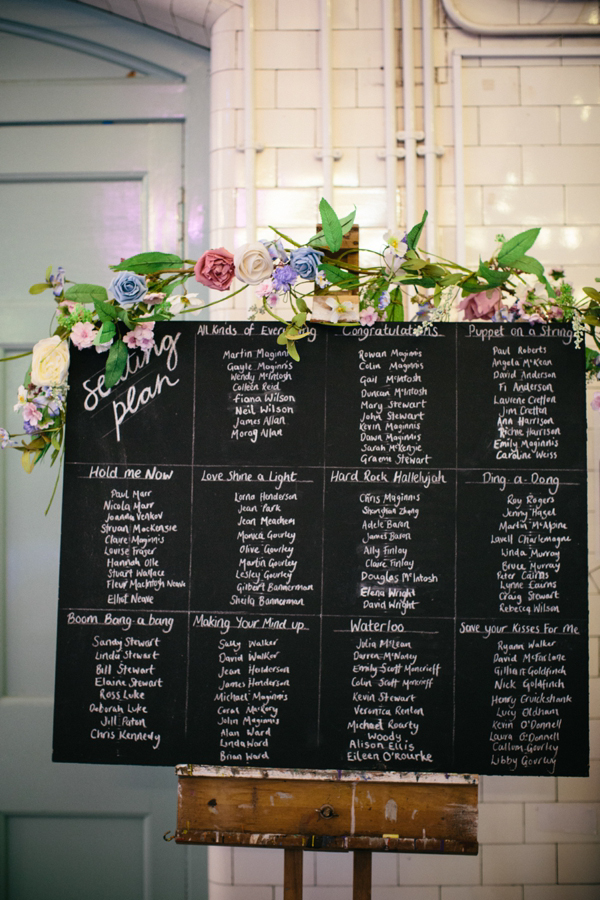 seating
plan
All Kinds of Everything
Martin Maginnis
Gayle Maginnis
Wendy McIntosh
Colleen Reid
Fiona Wilson
Neil Wilson
James Allan
Morag Allan
Congratulations
Rowan Maginnis
Colin Maginnis
Gail McIntosh
Duncan McIntosh
Mary Stewart
John Stewart
Kevin Maginnis
Dawn Maginnis
Sarah McKenzie
Graeme Stewart
Puppet on a String
Paul Roberts
Angela McKean
David Anderson
Fi Anderson
Laurene Cretton
Jim Cretton
Ann Harrison
Richie Harrison
Emily Maginnis
Caroline Weiss
Hold me Now
Paul Marr
Nicola Marr
Joanna Venkov
Struan MacKensie
Claire Maginnis
Louise Fraser
Hannah Olle
Stuart Wallace
Fleur MacIntosh Neave
Elliot Neave
Love Shine a Light
Lorna Henderson
Jean York
Jean Meachem
Monica Gourley
Olive Gourley
Martin Gourley
Lesley Gourley
Gilbert Bannerman
Sheila Bannerman
Hard Rock Hallelujah
Chris Maginnis
Shanshan Zhang
Adele Baron
James Baron
Ally Finlay
Claire Finlay
Douglas McIntosh
Elena Wright
David Wright
Ding-a-Dong
Roy Rogers
Jenny Hasel
Martin McAlpine
Lavell Charlemagne
Linda Murray
Bruce Murray
Peter Cairns
Lynne Cairns
Craig Stewart
Rebecca Wilson
Boom Bang-a-bang
Sandy Stewart
Linda Stewart
Bill Stewart
Elaine Stewart
Ross Luke
Deborah Luke
Jill Paton
Chris Kennedy
Making Your Mind up
Sally Walker
David Walker
Jean Henderson
James Henderson
Michael Maginnis
Ceran McRory
John Maginnis
Alan Ward
Linda Ward
Brian Ward
Waterloo
Julia McLean
Darren McNoley
Emily Scott Moncrieff
Colin Scott Moncrieff
Kevin Stewart
Veronica Renton
Michael Roarty
Woody
Alison Ellis
Eileen O'Rourke
Save your Kisses For me
Ryann Walker
David McFarlane
Gillian Goldfinch
Nick Goldfinch
Henry Cruickshank
Lucy Oldham
Kevin O'Donnell
Laura O'Donnell
Callum Gourley
Libby Gourley